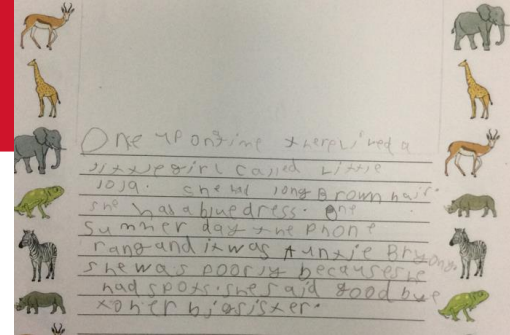 One up ontime there lived a
little girl called Little
lola. she had long Brown hair.
she has a blue dress. One
summer day the phone
rang and it was Auntie Bryony.
she was poorly because she
had spots. she said good bye
to her big sister.